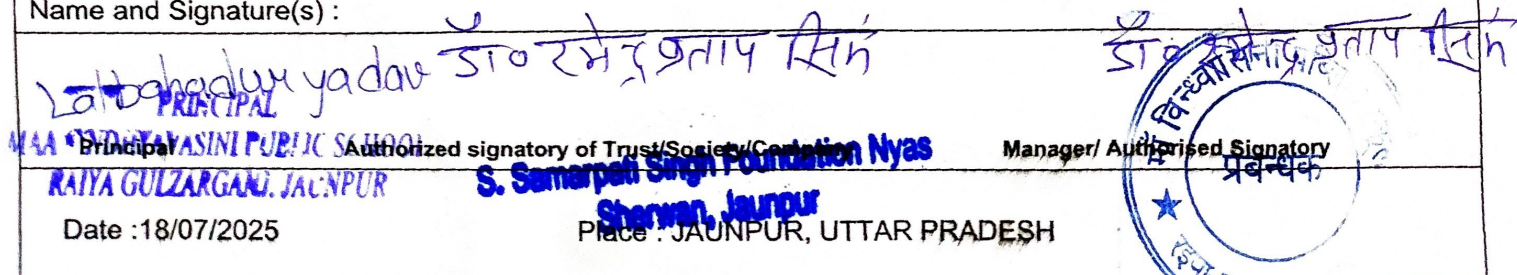 Name and Signature(s) :
Lalbahadur yadav डॉ० रमेन्द्र प्रताप सिंह डॉ० रमेन्द्र प्रताप सिंह
PRINCIPAL
MAA VINDHYAVASINI PUBLIC SCHOOL
RAIYA GULZARGANJ, JAUNPUR
Principal Authorized signatory of Trust/Society/Company Manager/ Authorised Signatory
S. Samarpati Singh Foundation Nyas
Sherwan, Jaunpur
माँ विन्ध्यवासिनी
प्रबन्धक
Date :18/07/2025 Place : JAUNPUR, UTTAR PRADESH